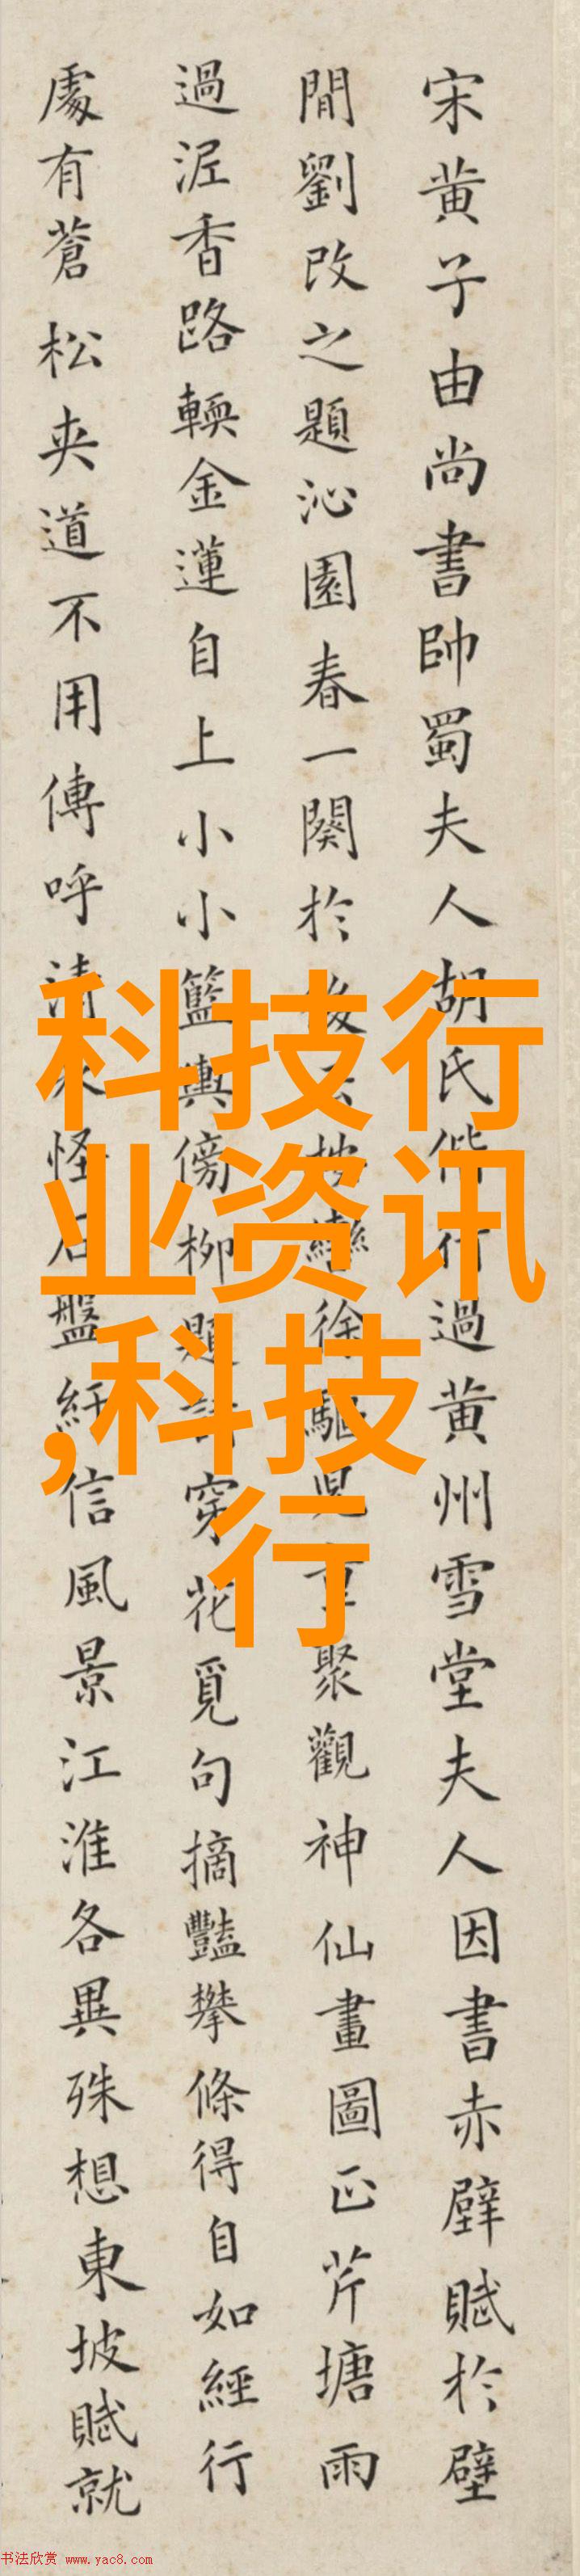 宋黄子由尚書帥蜀夫人胡氏偕行過黄州雪堂夫人因書赤壁賦於壁
間劉改之題沁園春一闋於後云按轡徐驅兒童聚觀神仙畫圖正芹塘雨
過泥香路輭金蓮自上小小籃輿傍柳題詩穿花覓句摘豔攀條得自如經行
處有蒼松夾道不用傳呼清泉怪石盤紆信風景江淮各異殊想東坡賦就
科技行
业资讯
,科技
行
书法欣赏 www.yac8.com